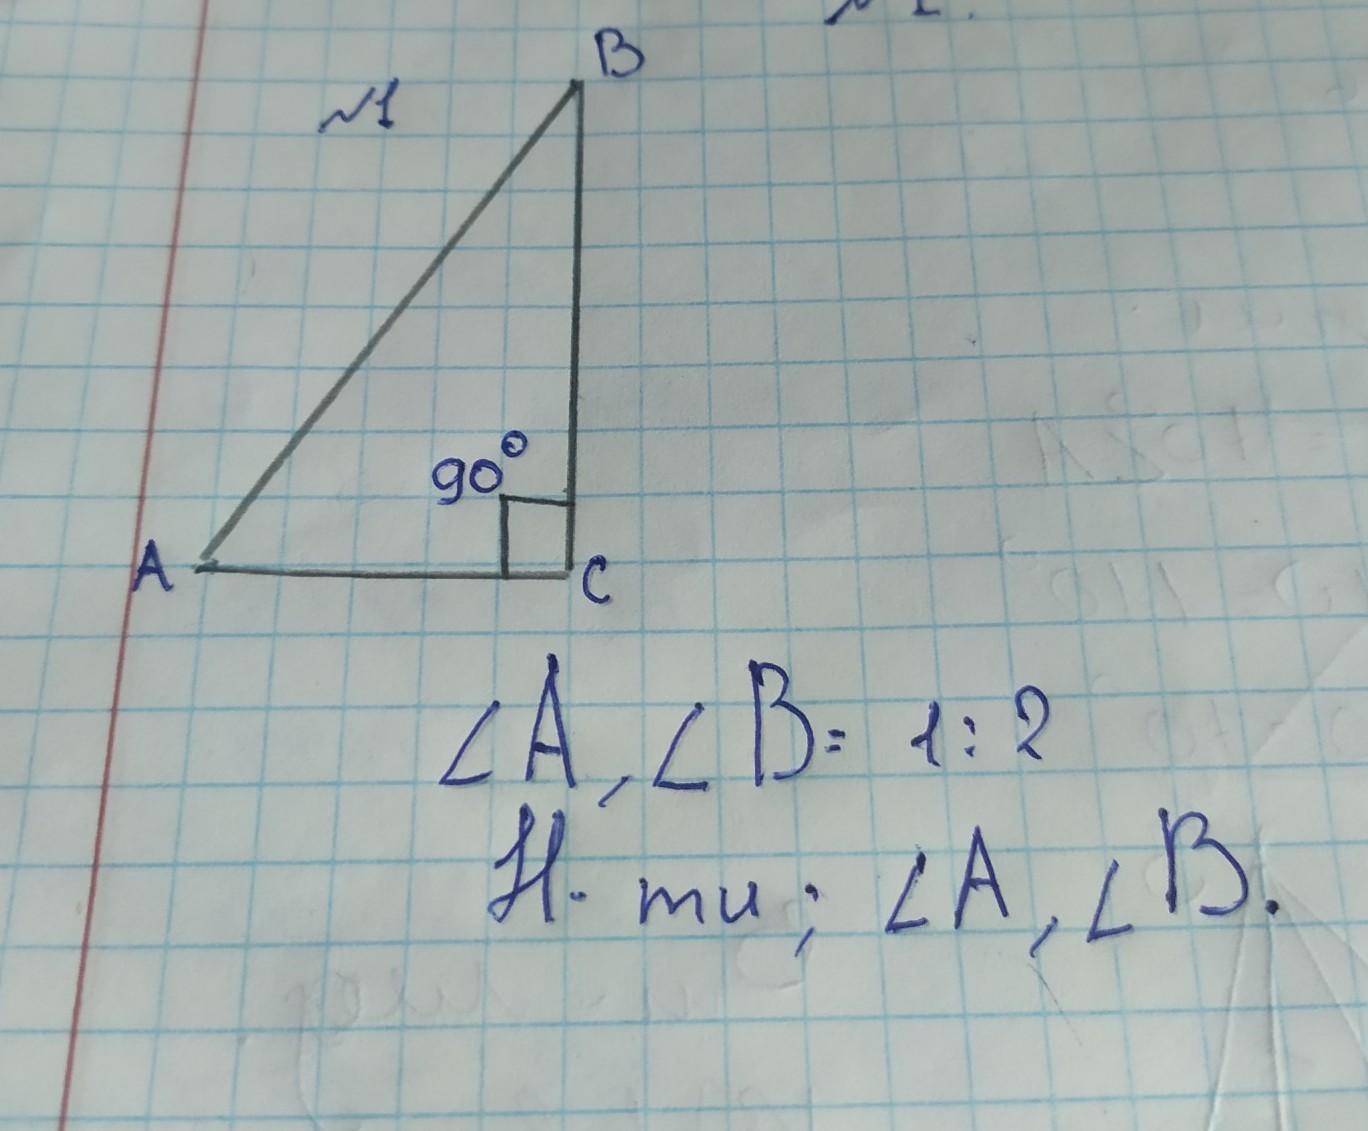 №1
B
90°
A
C
∠A, ∠B= 1:2
Н-ти; ∠A, ∠B.